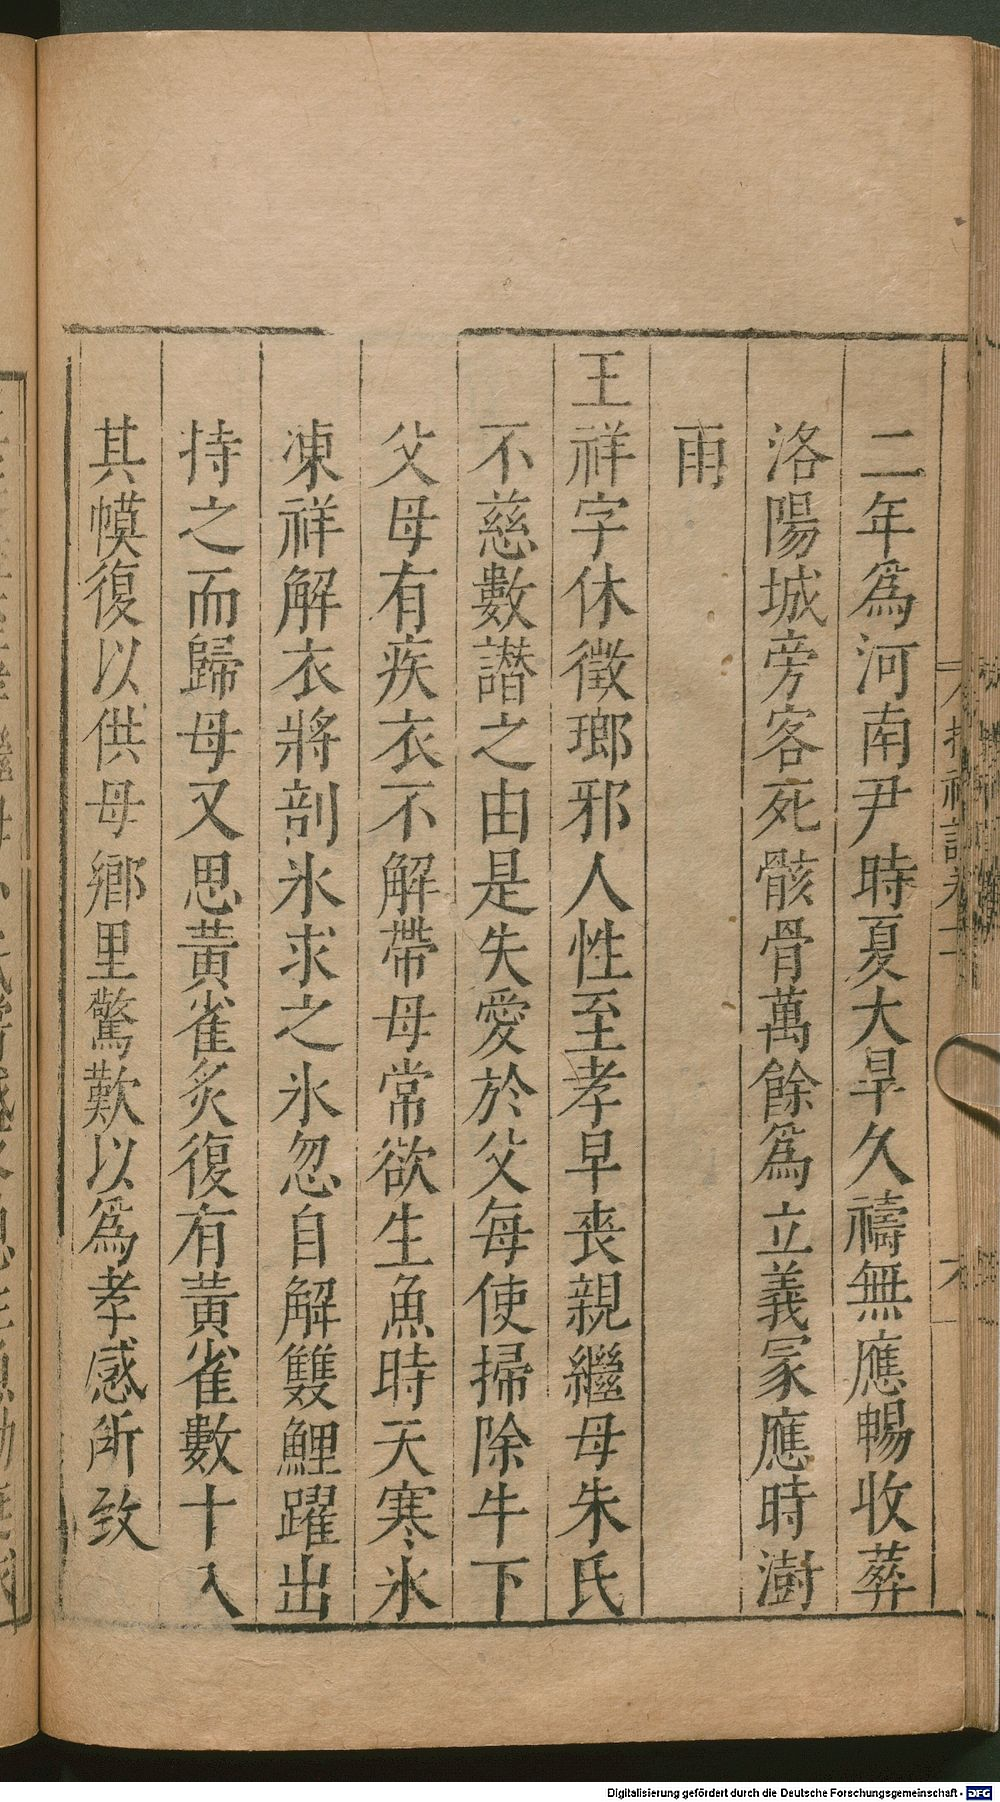 二年爲河南尹時夏大旱久禱無應暢收葬
洛陽城旁客死骸骨萬餘爲立義冢應時澍
雨
王祥字休徵瑯邪人性至孝早丧親繼母朱氏
不慈數譖之由是失愛於父每使掃除牛下
父母有疾衣不解帶母常欲生魚時天寒氷
凍祥解衣將剖氷求之氷忽自解雙鯉躍出
持之而歸母又思黃雀炙復有黃雀數十入
其幙復以供母鄉里驚歎以爲孝感所致
Digitalisierung gefördert durch die Deutsche Forschungsgemeinschaft - DFG